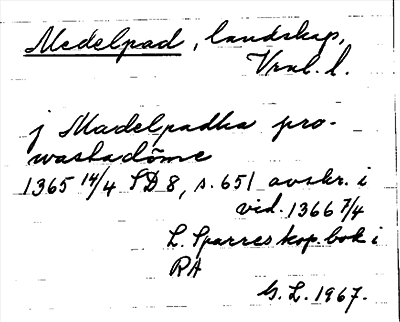 Medelpad, landskap,
Vrnl. l.
j Madelpadha pro-
wastadöme
1365 14/4 SD 8, s. 651 avskr. i
vid. 1366 7/4
L. Sparres kop. bok i
RA
G. L. 1967.